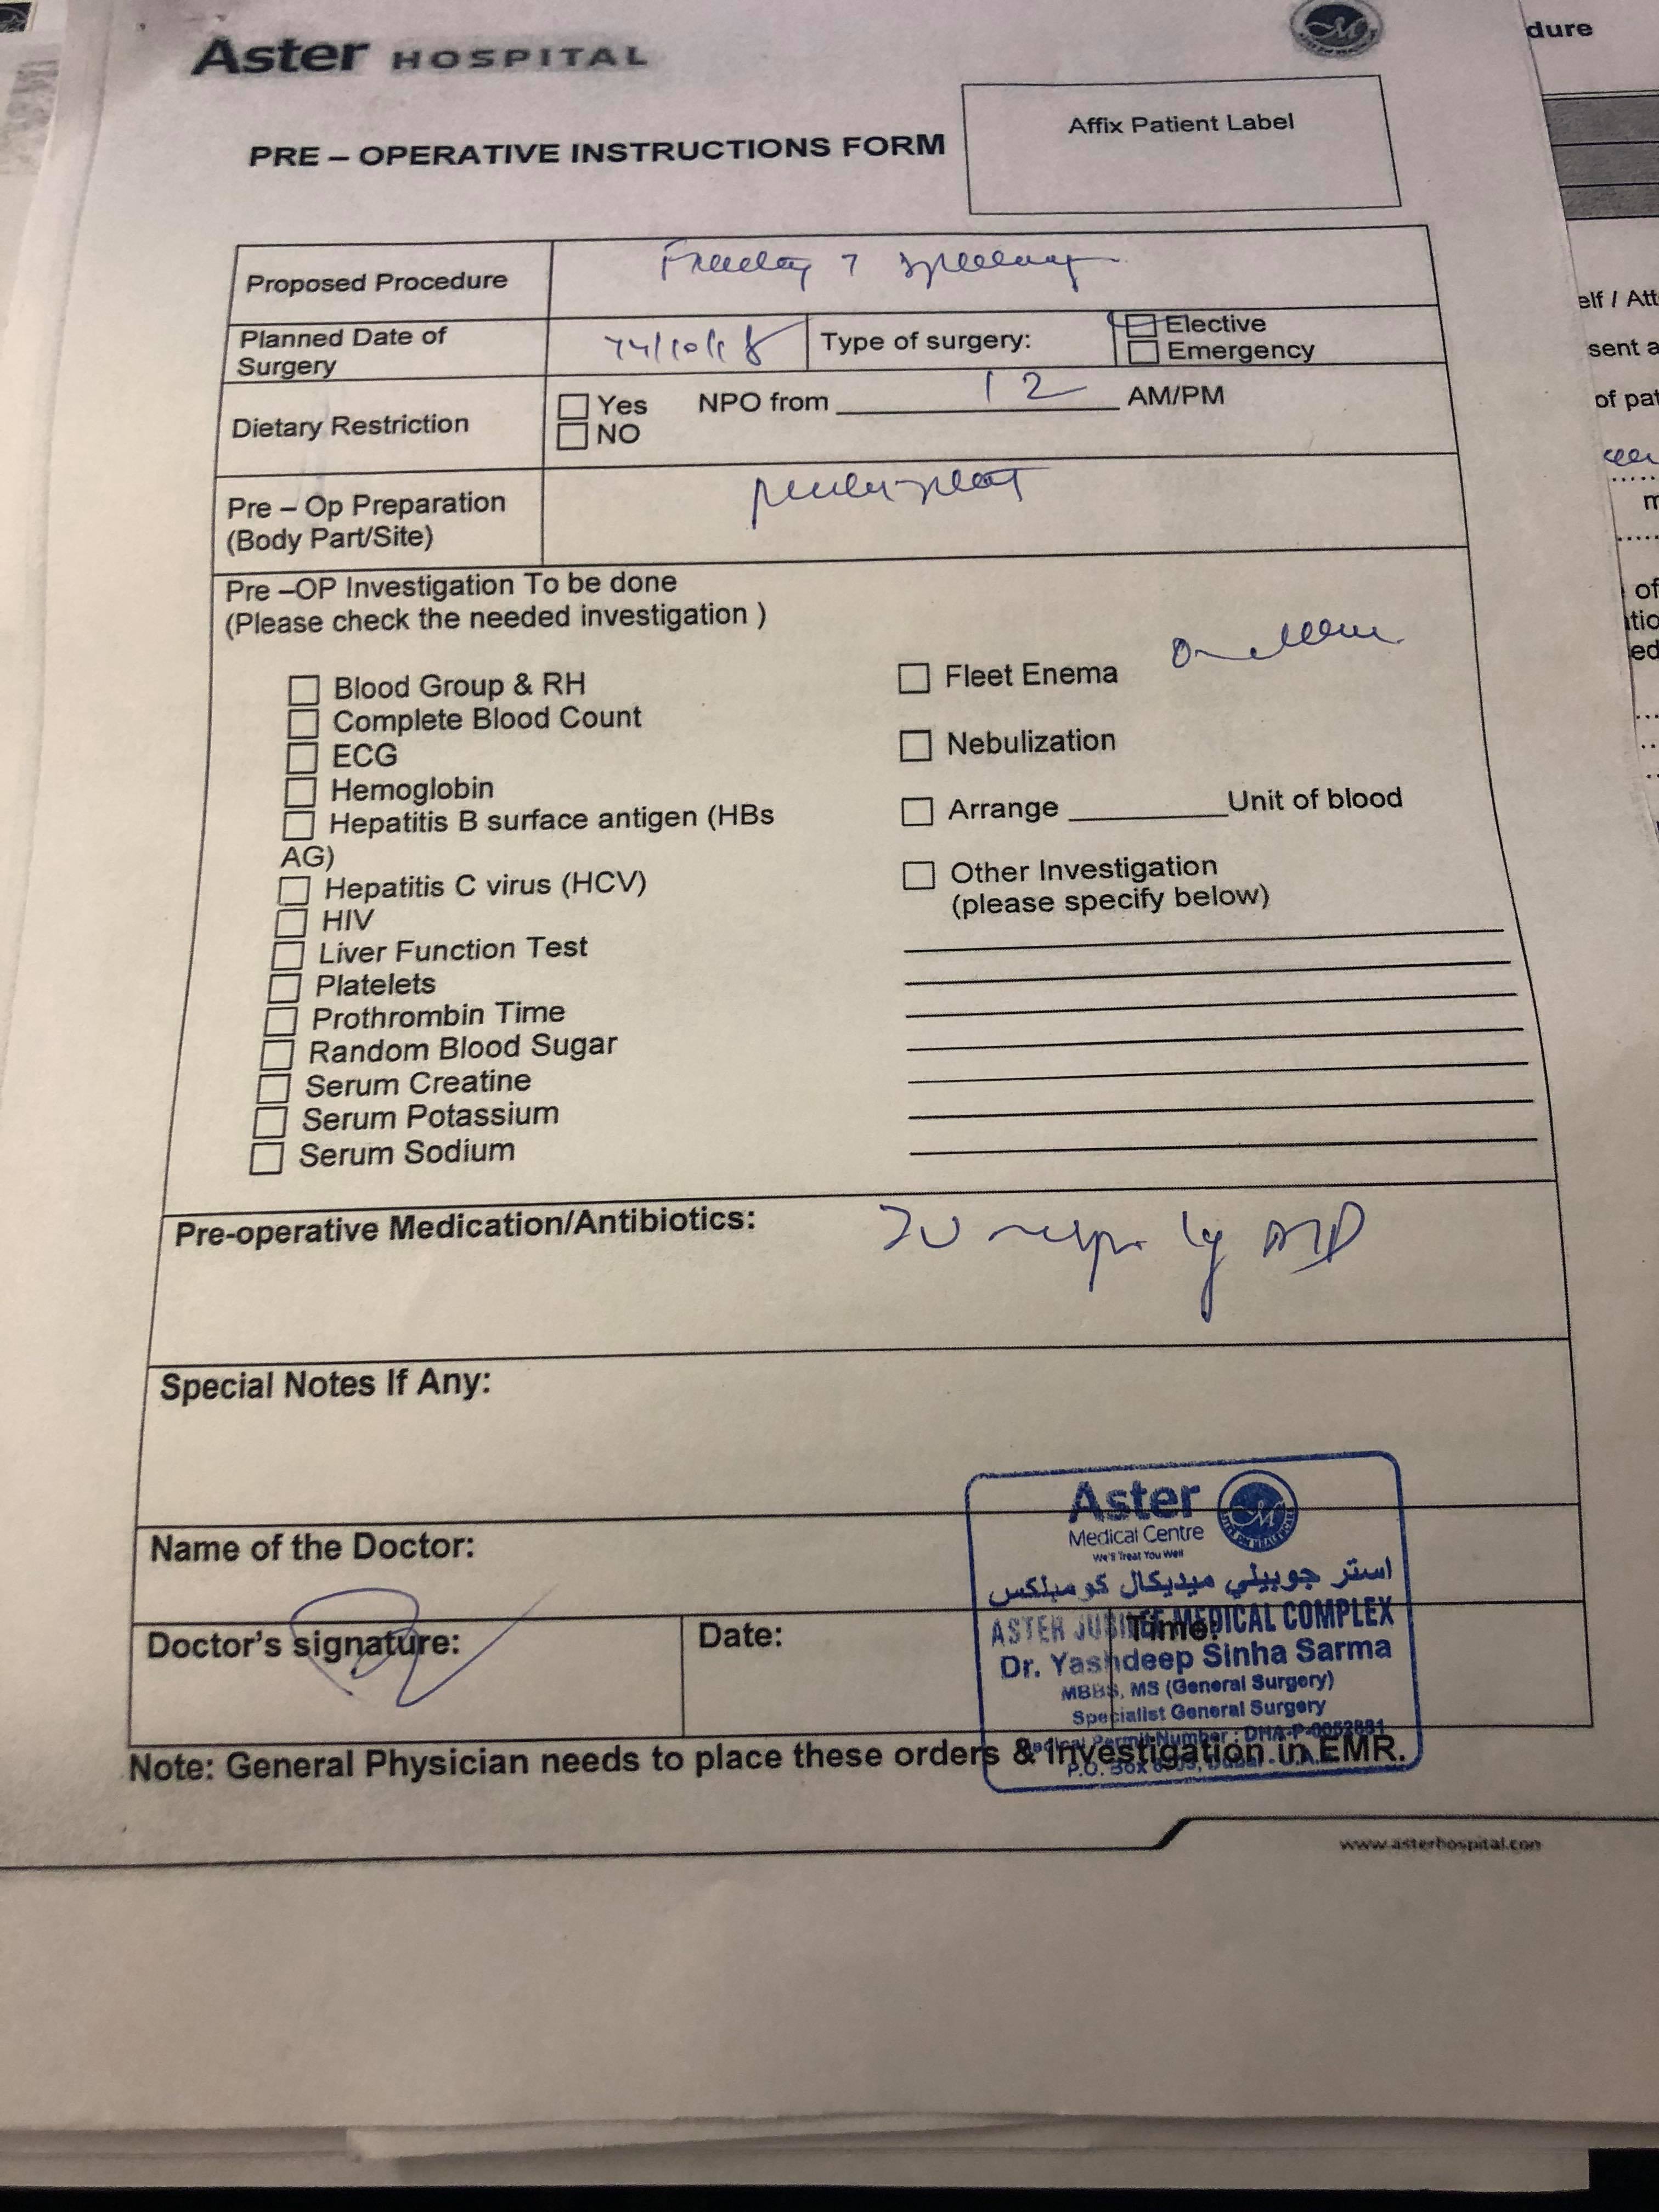 Aster HOSPITAL
PRE – OPERATIVE INSTRUCTIONS FORM
Affix Patient Label
Proposed Procedure
Planned Date of Surgery
Type of surgery:
Elective
Emergency
Dietary Restriction
Yes
NO
NPO from 12 AM/PM
Pre – Op Preparation
(Body Part/Site)
Pre –OP Investigation To be done
(Please check the needed investigation )
Blood Group & RH
Complete Blood Count
ECG
Hemoglobin
Hepatitis B surface antigen (HBs
AG)
Hepatitis C virus (HCV)
HIV
Liver Function Test
Platelets
Prothrombin Time
Random Blood Sugar
Serum Creatine
Serum Potassium
Serum Sodium
Fleet Enema
Nebulization
Arrange ________ Unit of blood
Other Investigation
(please specify below)
Pre-operative Medication/Antibiotics:
Special Notes If Any:
Name of the Doctor:
Doctor's signature:
Date:
Time:
Aster
Medical Centre
We'll Treat You Well
استر جوبيلي ميديكال كومبلكس
ASTER JUBILEE MEDICAL COMPLEX
Dr. Yashdeep Sinha Sarma
MBBS, MS (General Surgery)
Specialist General Surgery
Note: General Physician needs to place these orders & Investigation in EMR.
www.asterhospital.com
dure
elf / Att
sent a
of pat